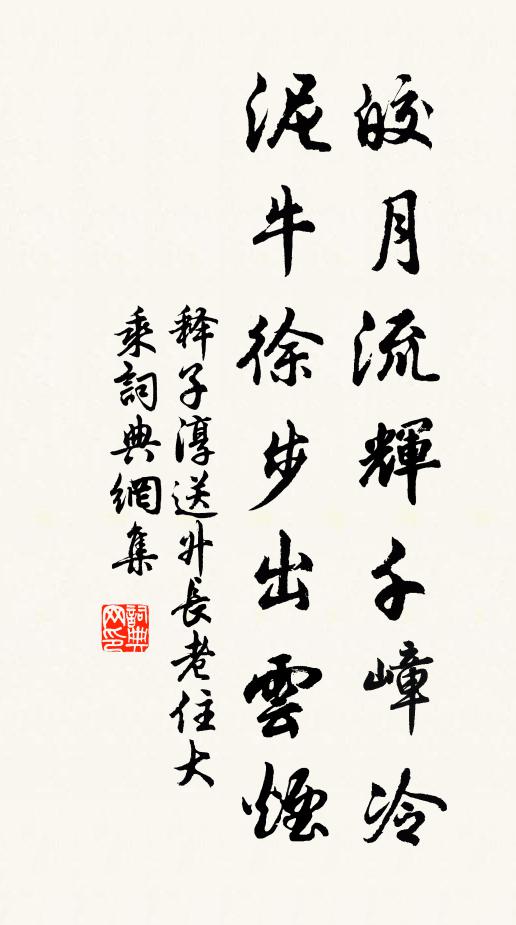 皎月流輝千嶂冷
泥牛徐步出雲煙
释子淳送升長老住大
乘詞典網集
詞典网印